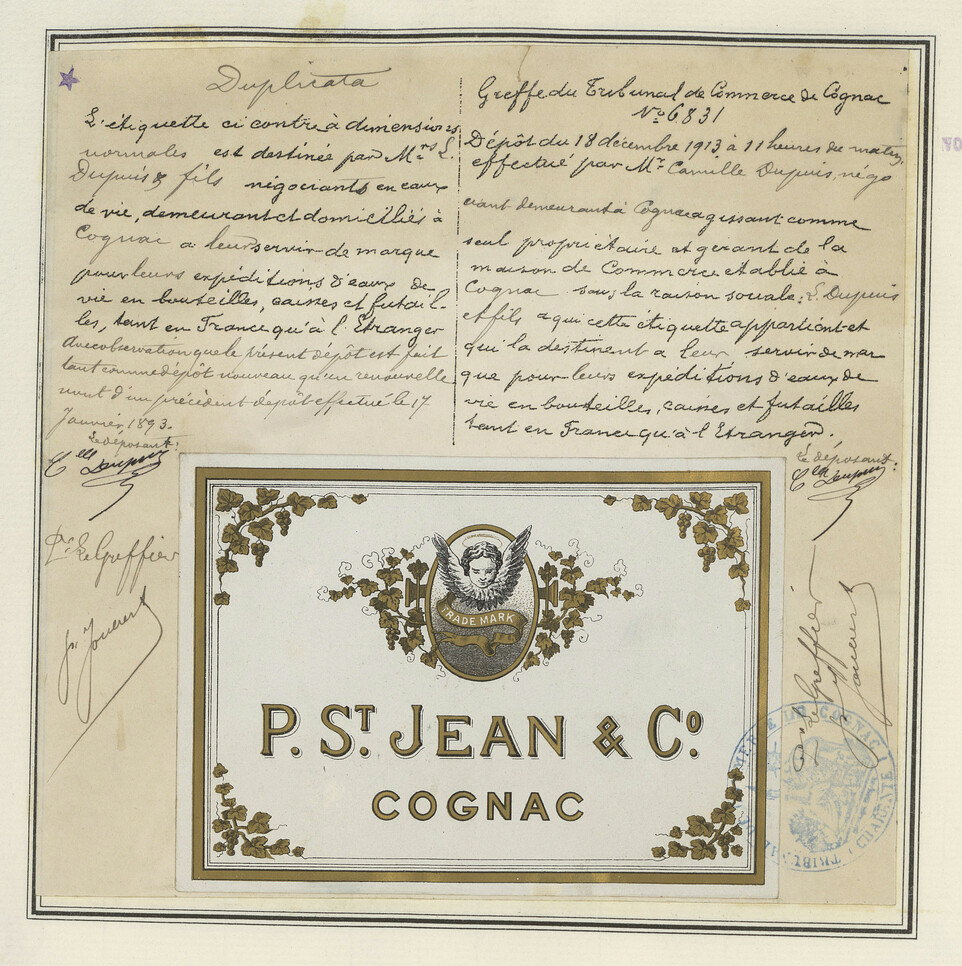 Duplicata
L'étiquette ci contre à dimensions
normales est destinée par Mrs L.
Dupuis & fils négociants en eaux
de vie, demeurant et domiciliés à
Cognac a leur servir de marque
pour leurs expéditions d'eaux de
vie en bouteilles, caisses et futail-
les, tant en France qu'à l'Etranger
avec observation que le présent dépôt est fait
tant comme dépôt nouveau qu'en renouvelle
ment d'un précédent dépôt effectué le 17
Janvier 1893.
Le déposant:
Clle Dupuis
Pr Le Greffier
Greffe du Tribunal de Commerce de Cognac
No 6831
Dépôt du 18 décembre 1913 à 11 heures de matin,
effectué par Mr Camille Dupuis, négo
ciant demeurant à Cognac agissant comme
seul propriétaire et gérant de la
maison de Commerce établie à
Cognac sous la raison sociale: L. Dupuis
et fils a qui cette étiquette appartient et
qui la destinent a leur servir de mar
que pour leurs expéditions d'eaux de
vie en bouteilles, caisses et futailles
tant en France qu'à l'Etranger.
Le déposant:
Clle Dupuis
Le Greffier
TRADE MARK
P. ST. JEAN & Co.
COGNAC
TRIBUNAL DE COMMERCE DE COGNAC
CHARENTE